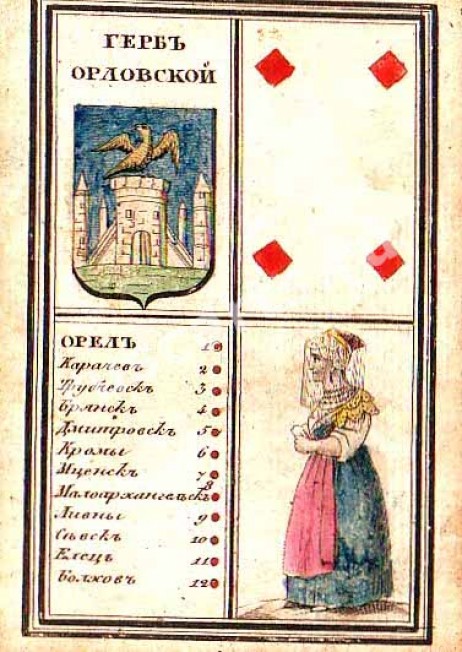 ГЕРБЪ
ОРЛОВСКОЙ
ОРЕЛЪ 1
Карачевъ 2
Трубчевскъ 3
Брянскъ 4
Дмитровскъ 5
Кромы 6
Мценскъ 7
Малоархангельскъ 8
Ливны 9
Сѣвскъ 10
Елецъ 11
Болховъ 12